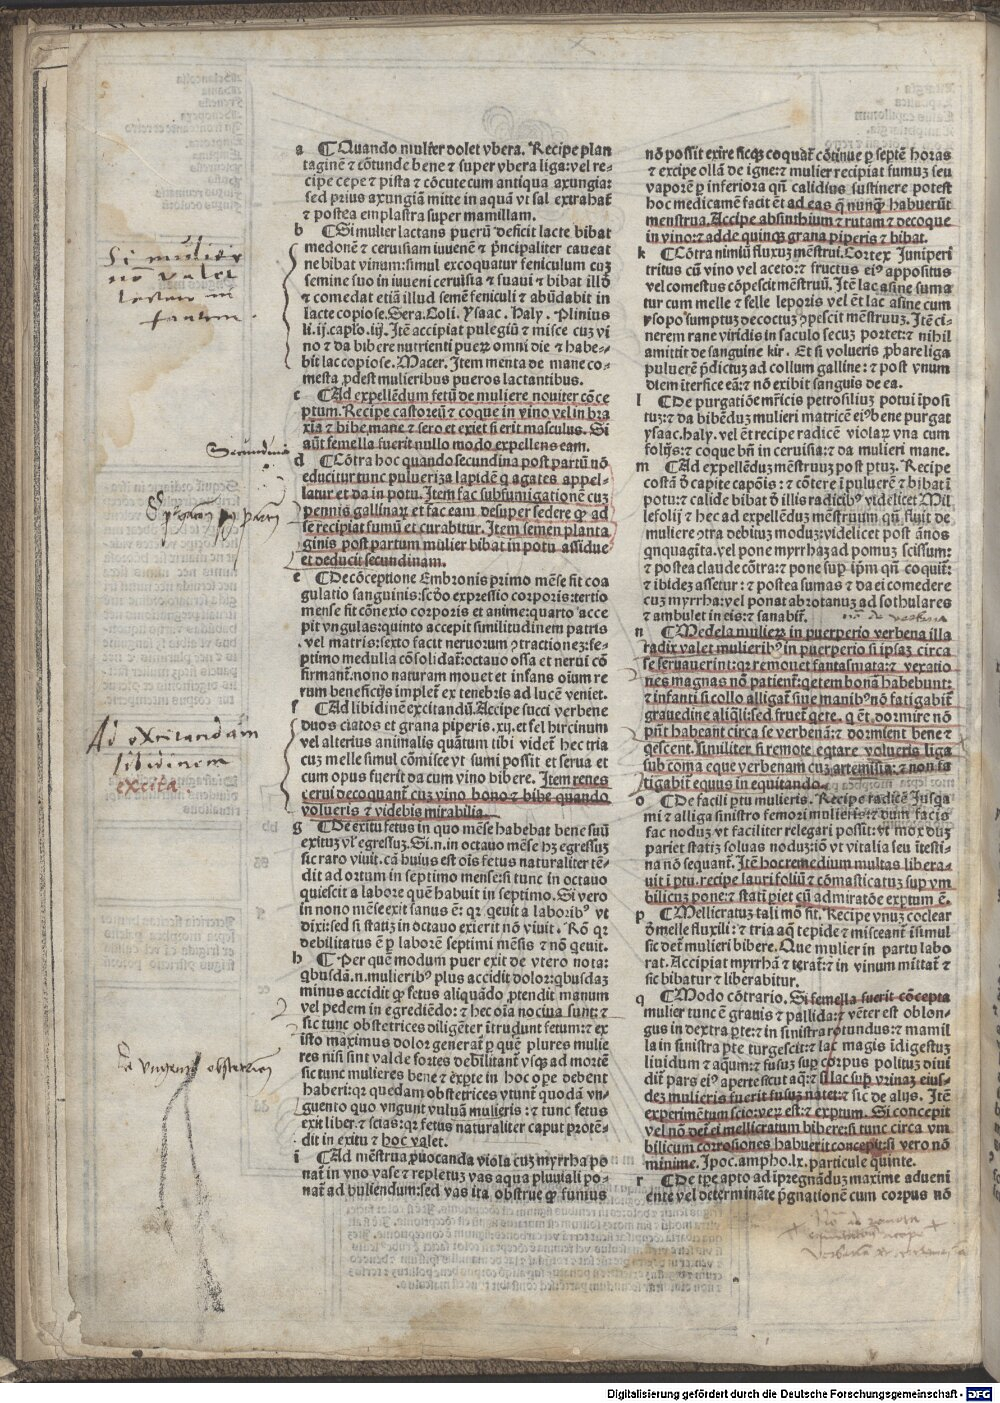 a ¶ Quando mulier dolet vbera. Recipe plan
taginē ⁊ cōtunde bene ⁊ super vbera liga: vel re-
cipe cepe ⁊ pista ⁊ cōcute cum antiqua axungia:
sed prius axungiā mitte in aquā vt sal extrahať
⁊ postea emplastra super mamillam.
b ¶ Si mulier lactans puerū deficit lacte bibat
medonē ⁊ ceruisiam iuuenē ⁊ p̄ncipaliter caueat
ne bibat vinum: simul excoquatur feniculum cuꝫ
semine suo in iuueni ceruisia ⁊ suaui ⁊ bibat illd̄
⁊ comedat etiā illud semē feniculi ⁊ abūdabit in
lacte copiose. Sera. Coli. Ysaac. Haly. Plinius
li. ij. caplo. ij. Itē accipiat pulegiū ⁊ misce cuꝫ vi
no ⁊ da bibere nutrienti pueꝝ omni die ⁊ habe-
bit lac copiose. Macer. Item menta de mane co-
mesta ꝓdest mulieribus pueros lactantibus.
c ¶ Ad expellēdum fetū de muliere nouiter cōce
ptum. Recipe castoreū ⁊ coque in vino vel in bra
xia ⁊ bibe mane ⁊ sero et exiet si erit masculus. Si
aūt femella fuerit nullo modo expellens eam.
d ¶ Cōtra hoc quando secundina post partū nō
educitur tunc pulueriza lapidē q agates appel-
latur et da in potu. Item fac subfumigationē cuꝫ
pennis gallinaꝝ et fac eam desuper sedere ꝙ ad
se recipiat fumū et curabitur. Item semen planta
ginis post partum mulier bibat in potu assidue
et deducit secundinam.
e ¶ De cōceptione Embronis primo mēse fit coa
gulatio sanguinis: scd̄o expressio corporis: tertio
mense fit cōnexio corporis et anime: quarto acce
pit vngulas: quinto accepit similitudinem patris
vel matris: sexto facit neruorum ꝯtractionez: se-
ptimo medulla cōsolidať: octauo ossa et nerui cō
firmant̄. nono naturam mouet et infans oium re
rum beneficijs impleť ex tenebris ad lucē veniet.
f ¶ Ad libidinē excitandū. Accipe succi verbene
duos ciatos et grana piperis. xij. et fel hircinum
vel alterius animalis quātum tibi videť hec tria
cuꝫ melle simul cōmisce vt sumi possit et serua et
cum opus fuerit da cum vino bibere. Item renes
cerui decoquanť cuꝫ vino bono ⁊ bibe quando
volueris ⁊ videbis mirabilia.
g ¶ De exitu fetus in quo mēse habebat bene suū
exituꝫ vl' egressuꝫ. Si. n. in octauo mēse hꝫ egressuꝫ
sic raro viuit. cā huius est oīs fetus naturaliter tē-
dit ad ortum in septimo mense: si tunc in octauo
quiescit a labore quē habuit in septimo. Si vero
in nono mēse exit sanus ē: qꝛ qeuit a laborib⁹ vt
dixi: sed si statiꝫ in octauo exierit nō viuit. Rō qꝛ
debilitatus ē ꝑ laborē septimi mēsis ⁊ nō qeuit.
h ¶ Per quē modum puer exit de vtero nota:
qbusdā. n. mulierib⁹ plus accidit dolor: qbusdaꝫ
minus accidit ꝙ fetus aliquādo ꝓtendit manum
vel pedem in egrediēdo: ⁊ hec oīa nociua sunt: ⁊
sic tunc obstetrices diligēter ītrudunt fetum: ⁊ ex
isto maximus dolor generať ꝑ quē plures mulie
res nisi sint valde fortes debilitanť vsqꝫ ad mortē
sic tunc mulieres bene ⁊ exꝑte in hoc oꝑe debent
haberi: qꝛ quedam obstetrices vtunť quodā vn-
guento quo vngunt vuluā mulieris: ⁊ tunc fetus
exit liber. ⁊ scias: qꝛ fetus naturaliter caput protē-
dit in exitu ⁊ hoc valet.
i ¶ Ad mēstrua ꝓuocanda viola cuꝫ myrrha po
nať in vno vase ⁊ repletuꝫ vas aqua pluuiali po-
nať ad buliendum: sed vas ita obstrue ꝙ fumus
nō possit exire sicqꝫ coquať cōtinue ꝑ septē horas
⁊ excipe ollā de igne: ⁊ mulier recipiat fumuꝫ seu
vaporē ꝑ inferiora qn̄ calidius sustinere potest
hoc medicamē facit ēt ad eas q̄ nunqꝫ habuerūt
menstrua. Accipe absinthium ⁊ rutam ⁊ decoque
in vino: ⁊ adde quinqꝫ grana piperis ⁊ bibat.
k ¶ Cōtra nimiū fluxuꝫ mēstrui. Cortex Juniperi
tritus cū vino vel aceto: ⁊ fructus ei⁹ appositus
vel comestus cōpescit mēstruū. Itē lac asine suma
tur cum melle ⁊ felle leporis vel ēt lac asine cum
ysopo sumptuꝫ decoctuꝫ ꝯpescit mēstruuꝫ. Itē ci-
nerem rane viridis in saculo secuꝫ portet: ⁊ nihil
amittit de sanguine kir. Et si volueris ꝓbare liga
puluerē p̄dictuꝫ ad collum galline: ⁊ post vnum
diem īterfice eā: ⁊ nō exibit sanguis de ea.
l ¶ De purgatiōe mr̄icis petrosiliuꝫ potui īposi
tuꝫ: ⁊ da bibēduꝫ mulieri matricē ei⁹ bene purgat
ysaac. haly. vel ēt recipe radicē violaꝝ vna cum
folijs: ⁊ coque bn̄ in ceruisia: ⁊ da mulieri mane.
m ¶ Ad expellēduꝫ mēstruuꝫ post ptuꝫ. Recipe
costā d̄ capite capōis: ⁊ cōtere ī puluerē ⁊ bibat ī
potu: ⁊ calide bibat d̄ illis radicib⁹ videlicet Mil
lefolij ⁊ hec ad expellēduꝫ mēstruum qn̄ fluit de
muliere ꝯtra debituꝫ moduꝫ: videlicet post ānos
qnquagīta. vel pone myrrhaꝫ ad pomuꝫ scissum:
⁊ postea claude cōtra: ⁊ pone sup īpm qn̄ coquiť:
⁊ ibidez assetur: ⁊ postea sumas ⁊ da ei comedere
cuꝫ myrrha: vel ponat abrotanuꝫ ad sothulares
⁊ ambulet in eis: ⁊ sanabiť.
n ¶ Medela mulieꝝ in puerperio verbena illa
radix valet mulierib⁹ in puerperio si ipsaꝫ circa
se seruauerint: qꝛ remouet fantasmata: ⁊ vexatio
nes magnas nō patienť: qetem bonā habebunt:
⁊ infanti si collo alligať sine manib⁹ nō fatigabiť
grauedine aliqli: sed frueť qete. q ēt dormire nō
pn̄t habeant circa se verbenā: ⁊ dormient bene ⁊
qescent. Similiter si remote eqtare volueris liga
sub coma eque verbenam cuꝫ artemisia: ⁊ non fa
tigabiť equus in equitando.
o ¶ De facili ptu mulieris. Recipe radicē Jusqa
mi ⁊ alliga sinistro femori mulieris: ⁊ dum facis
fac noduꝫ vt faciliter relegari possit: vt mox duꝫ
pariet statiꝫ soluas noduꝫ: iō vt vitalia seu ītesti-
na nō sequanť. Itē hoc remedium multas libera-
uit ī ptu. recipe lauri foliū ⁊ cōmasticatuꝫ sup vm
bilicuꝫ pone: ⁊ stati piet cū admiratōe exptum ē.
p ¶ Mellicratuꝫ tali mō fit. Recipe vnuꝫ coclear
d̄ melle fluxili: ⁊ tria aq̄ tepide ⁊ misceant īsimul
sic deť mulieri bibere. Que mulier in partu labo
rat. Accipiat myrrhā ⁊ terat: ⁊ in vinum mittať ⁊
sic bibatur ⁊ liberabitur.
q ¶ Modo cōtrario. Si femella fuerit cōcepta
mulier tunc ē grauis ⁊ pallida: ⁊ vēter est oblon-
gus in dextra ꝑte: ⁊ in sinistra rotundus: ⁊ mamil
la in sinistra ꝑte turgescit: ⁊ lac magis īdigestuꝫ
liuidum ⁊ aqum: ⁊ fusuꝫ sup corpus politus diui
diť pars ei⁹ aperte sicut aq̄: ⁊ si lac sup vrinaꝫ eius-
deꝫ mulieris fuerit fusuꝫ natet: ⁊ sic de alijs. Itē
experimētum scio: veꝝ est: ⁊ exptum. Si concepit
vel nō deť ei mellicratum bibere: si tunc circa vm
bilicum corrosiones habuerit concepit: si vero nō
minime. Ipoc. ampho. lx. particule quinte.
r ¶ De tpe apto ad īpregnāduꝫ maxime adueni
ente vel determināte p̄gnationē cum corpus nō
Si mulier
nō valet
lactare in
fantem.
Secundina
Ad excitandam
libidinem
excita.
de vnguento obstetricum
Digitalisierung gefördert durch die Deutsche Forschungsgemeinschaft - DFG